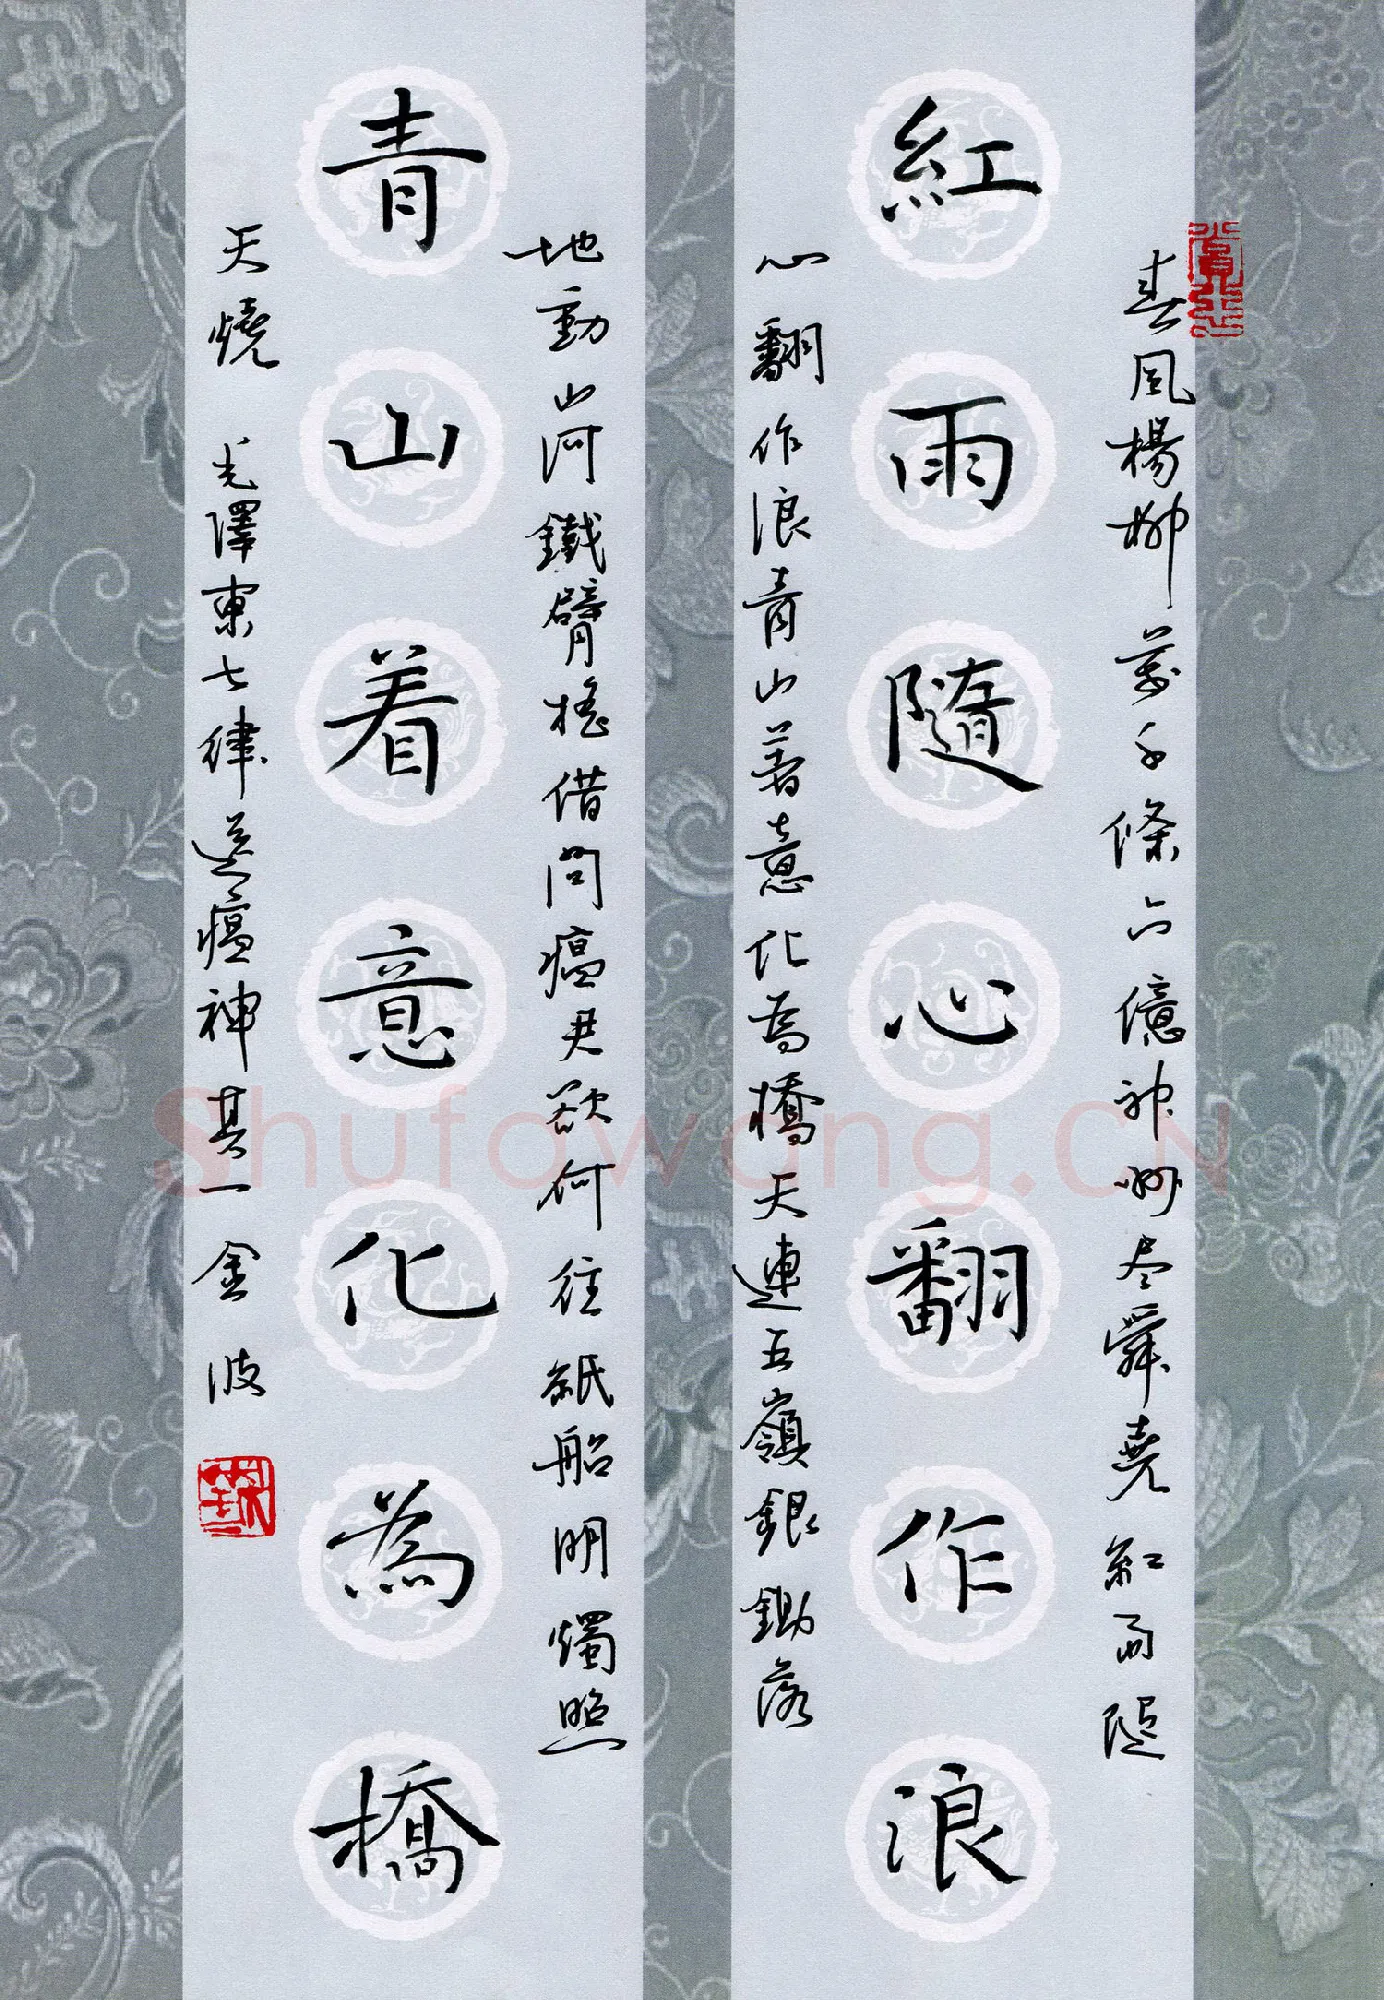 紅雨隨心翻作浪
春風楊柳萬千條六億神州尽舜堯紅雨隨
心翻作浪青山著意化為橋天連五嶺銀鋤落
青山着意化為橋
地動山河鐵臂搖借問瘟君欲何往紙船明燭照
天燒 毛澤東七律送瘟神其一金波
Shufawang.CN